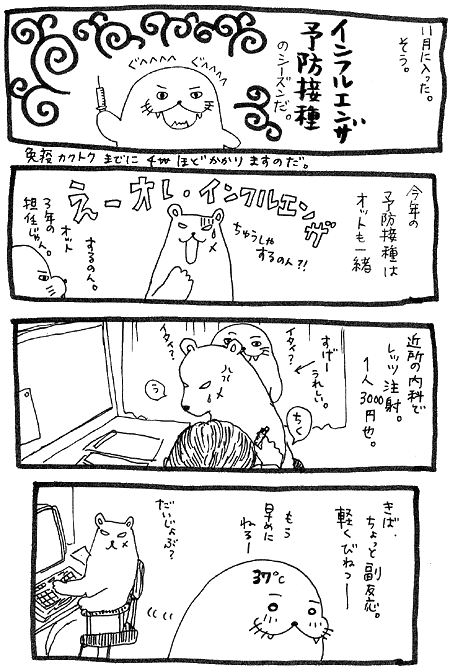 11月に入った。
そう。
インフルエンザ
予防接種
のシーズンだ。
ぐへへへへ
ぐへへへへ
免疫カクトクまでに4wほどかかりますのだ。
今年の
予防接種は
オットも一緒
えーオレ・インフルエンザ
ちゅうしゃ
するのん?!
するのん。
オット
3年の
担任じゃん。
近所の内科で
レッツ注射。
1人3000円也。
すげー
うれしい。
イタイ?
イタイ?
ちく
う
きば、
ちょっと副反応。
軽くびねつー
もう
早めに
ねるー
37℃
だいじょぶ?